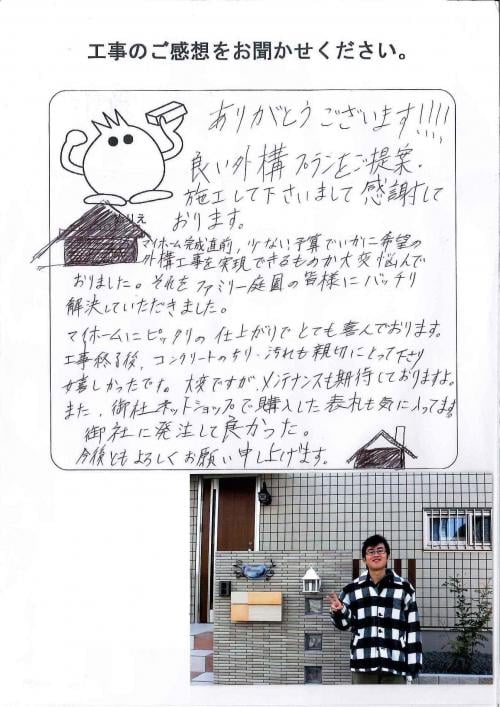 工事のご感想をお聞かせください。
ありがとうございます!!!!
良い外構プランをご提案・
施工して下さいまして感謝して
おります。
マイホーム完成直前、少ない予算でいかに希望の
外構工事を実現できるものか大変悩んで
おりました。それをファミリー庭園の皆様にバッチリ
解決していただきました。
マイホームにピッタリの仕上がりでとても喜んでおります。
工事終了後、コンクリートのちり・汚れも親切にとって下さり
嬉しかったです。大変ですが、メンテナンスも期待しておりますよ。
また、御社ネットショップで購入した表札も気に入ってます。
御社に発注して良かった。
今後ともよろしくお願い申し上げます。